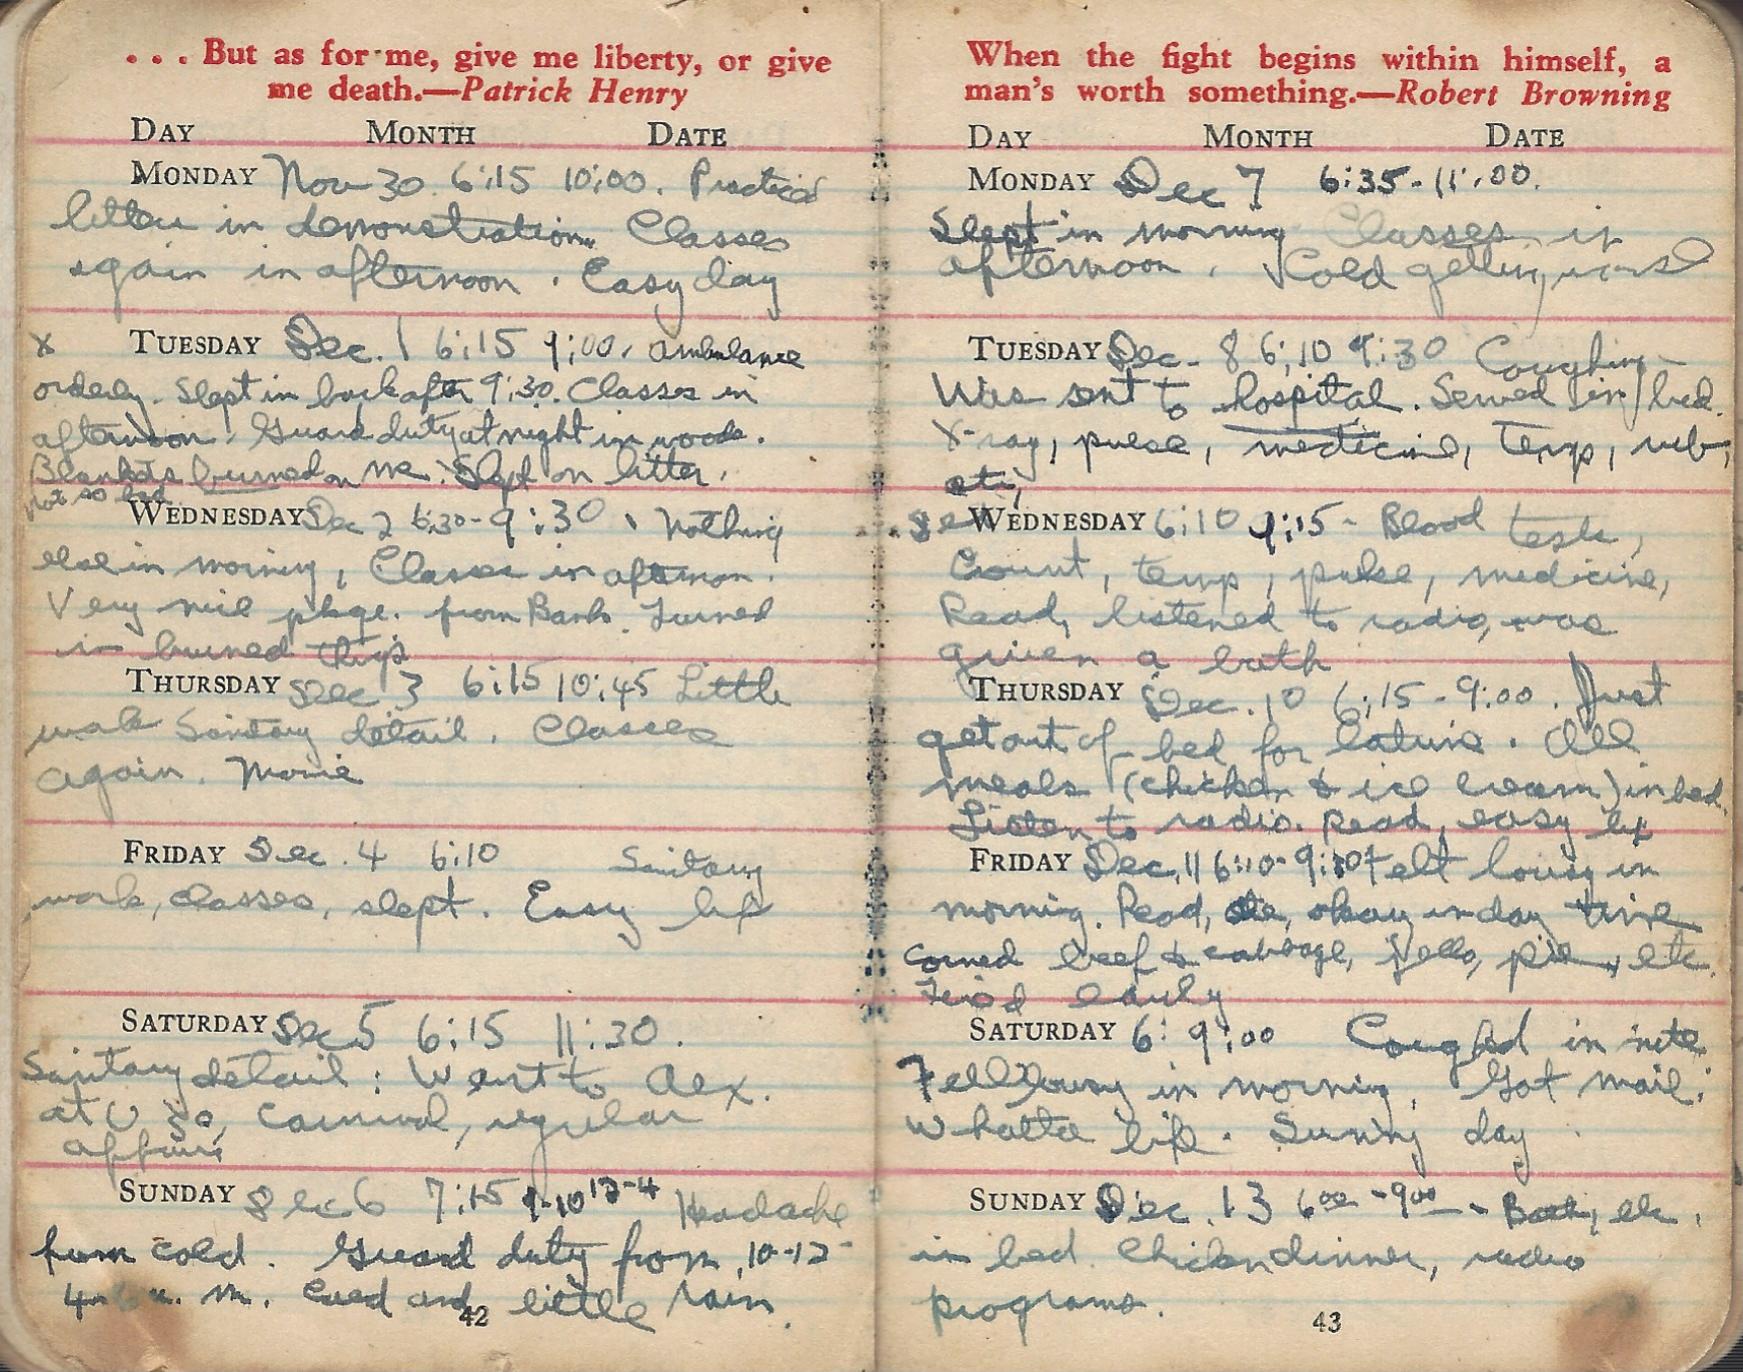 . . . But as for me, give me liberty, or give
me death.—Patrick Henry
DAY MONTH DATE
MONDAY Nov 30 6:15 10:00. Practiced
litter in demonstration. Classes
again in afternoon. Easy day
x TUESDAY Dec. 1 6:15 9:00. ambulance
orderly. Slept in back after 9:30. Classes in
afternoon. Guard duty at night in woods.
Blankets burned on me. Slept on litter.
not so bad
WEDNESDAY Dec 2 6:30-9:30. Nothing
else in morning, Classes in afternoon.
Very nice pkge. from Barb. Turned
in burned things
THURSDAY Dec 3 6:15 10:45 Little
work Sanitary detail. Classes
again. Movie
FRIDAY Dec. 4 6:10 Sanitary
work, classes, slept. Easy life
SATURDAY Dec 5 6:15 11:30.
Sanitary detail: Went to Alex.
at U So, Carnival, regular
affair
SUNDAY Dec 6 7:15 9-10 12-4 Headache
from cold. Guard duty from 10-12
4-6 a. m. Cold and little rain.
42
When the fight begins within himself, a
man's worth something.—Robert Browning
DAY MONTH DATE
MONDAY Dec 7 6:35-11:00.
Slept in morning Classes in
afternoon. Cold getting worse
TUESDAY Dec. 8 6:10 9:30 Coughing
Was sent to hospital. Served in bed.
X-ray, pulse, medicine, temp, rub,
etc,
WEDNESDAY 6:10 9:15- Blood tests,
Count, temp, pulse, medicine,
Read, listened to radio, was
given a bath
THURSDAY Dec. 10 6:15-9:00. Just
get out of bed for latrine. All
meals (chicken & ice cream) in bed.
Listen to radio. Read, easy life
FRIDAY Dec. 11 6:10-9:10 Felt lousy in
morning. Read, ate, okay in day time
Corned beef & cabbage, jello, pie, etc.
Tired early
SATURDAY 6: 9:00 Coughed in nite
Fell lousy in morning. Got mail.
Whatta life. Sunny day.
SUNDAY Dec. 13 6:00-9:00- Bath, etc.
in bed. Chicken dinner, radio
programs.
43